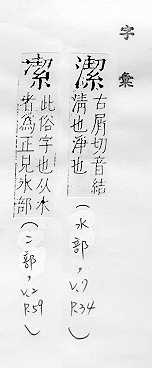 字彙
潔
古屑切音結
清也淨也
(水部,
V.7
P.34)
㓗
此俗字也从水
者為正見水部
(冫部,
V.2
P.59)